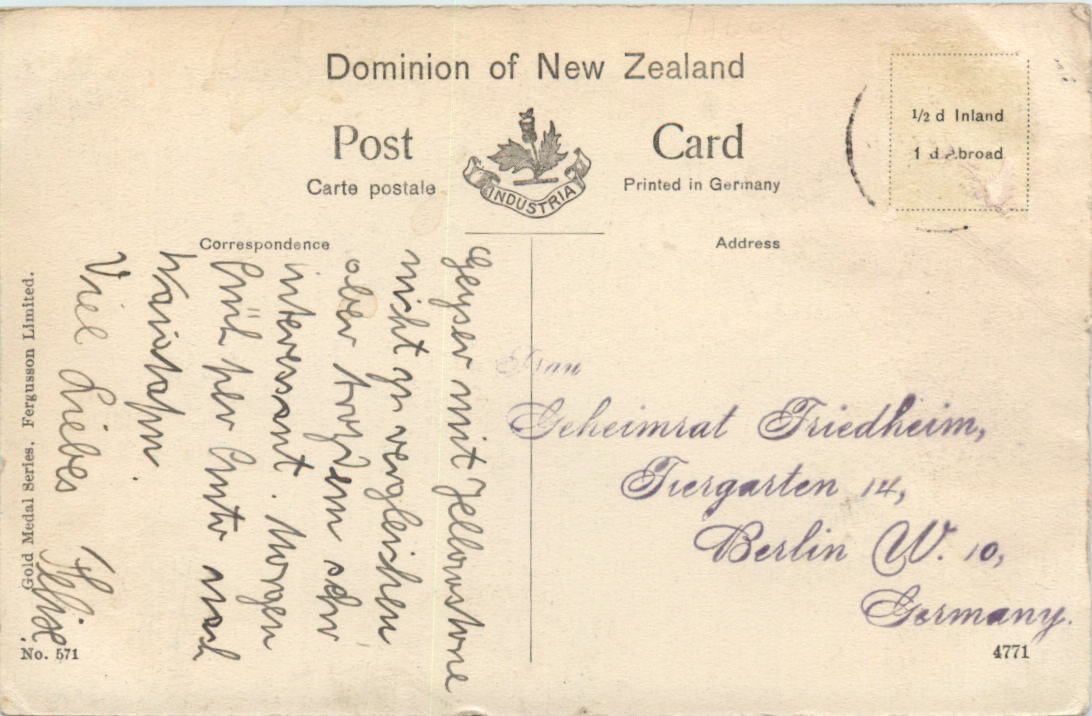 Dominion of New Zealand
Post Card
Carte postale
Printed in Germany
INDUSTRIA
1/2 d Inland
1 d Abroad
Correspondence
Address
Geyser mit Yellowstone
nicht zu vergleichen
aber trotzdem sehr
interessant. Morgen
früh per Auto nach
Viel Liebes
Frau
Geheimrat Friedheim,
Tiergarten 14,
Berlin W. 10,
Germany.
Gold Medal Series. Fergusson Limited.
No. 571
4771